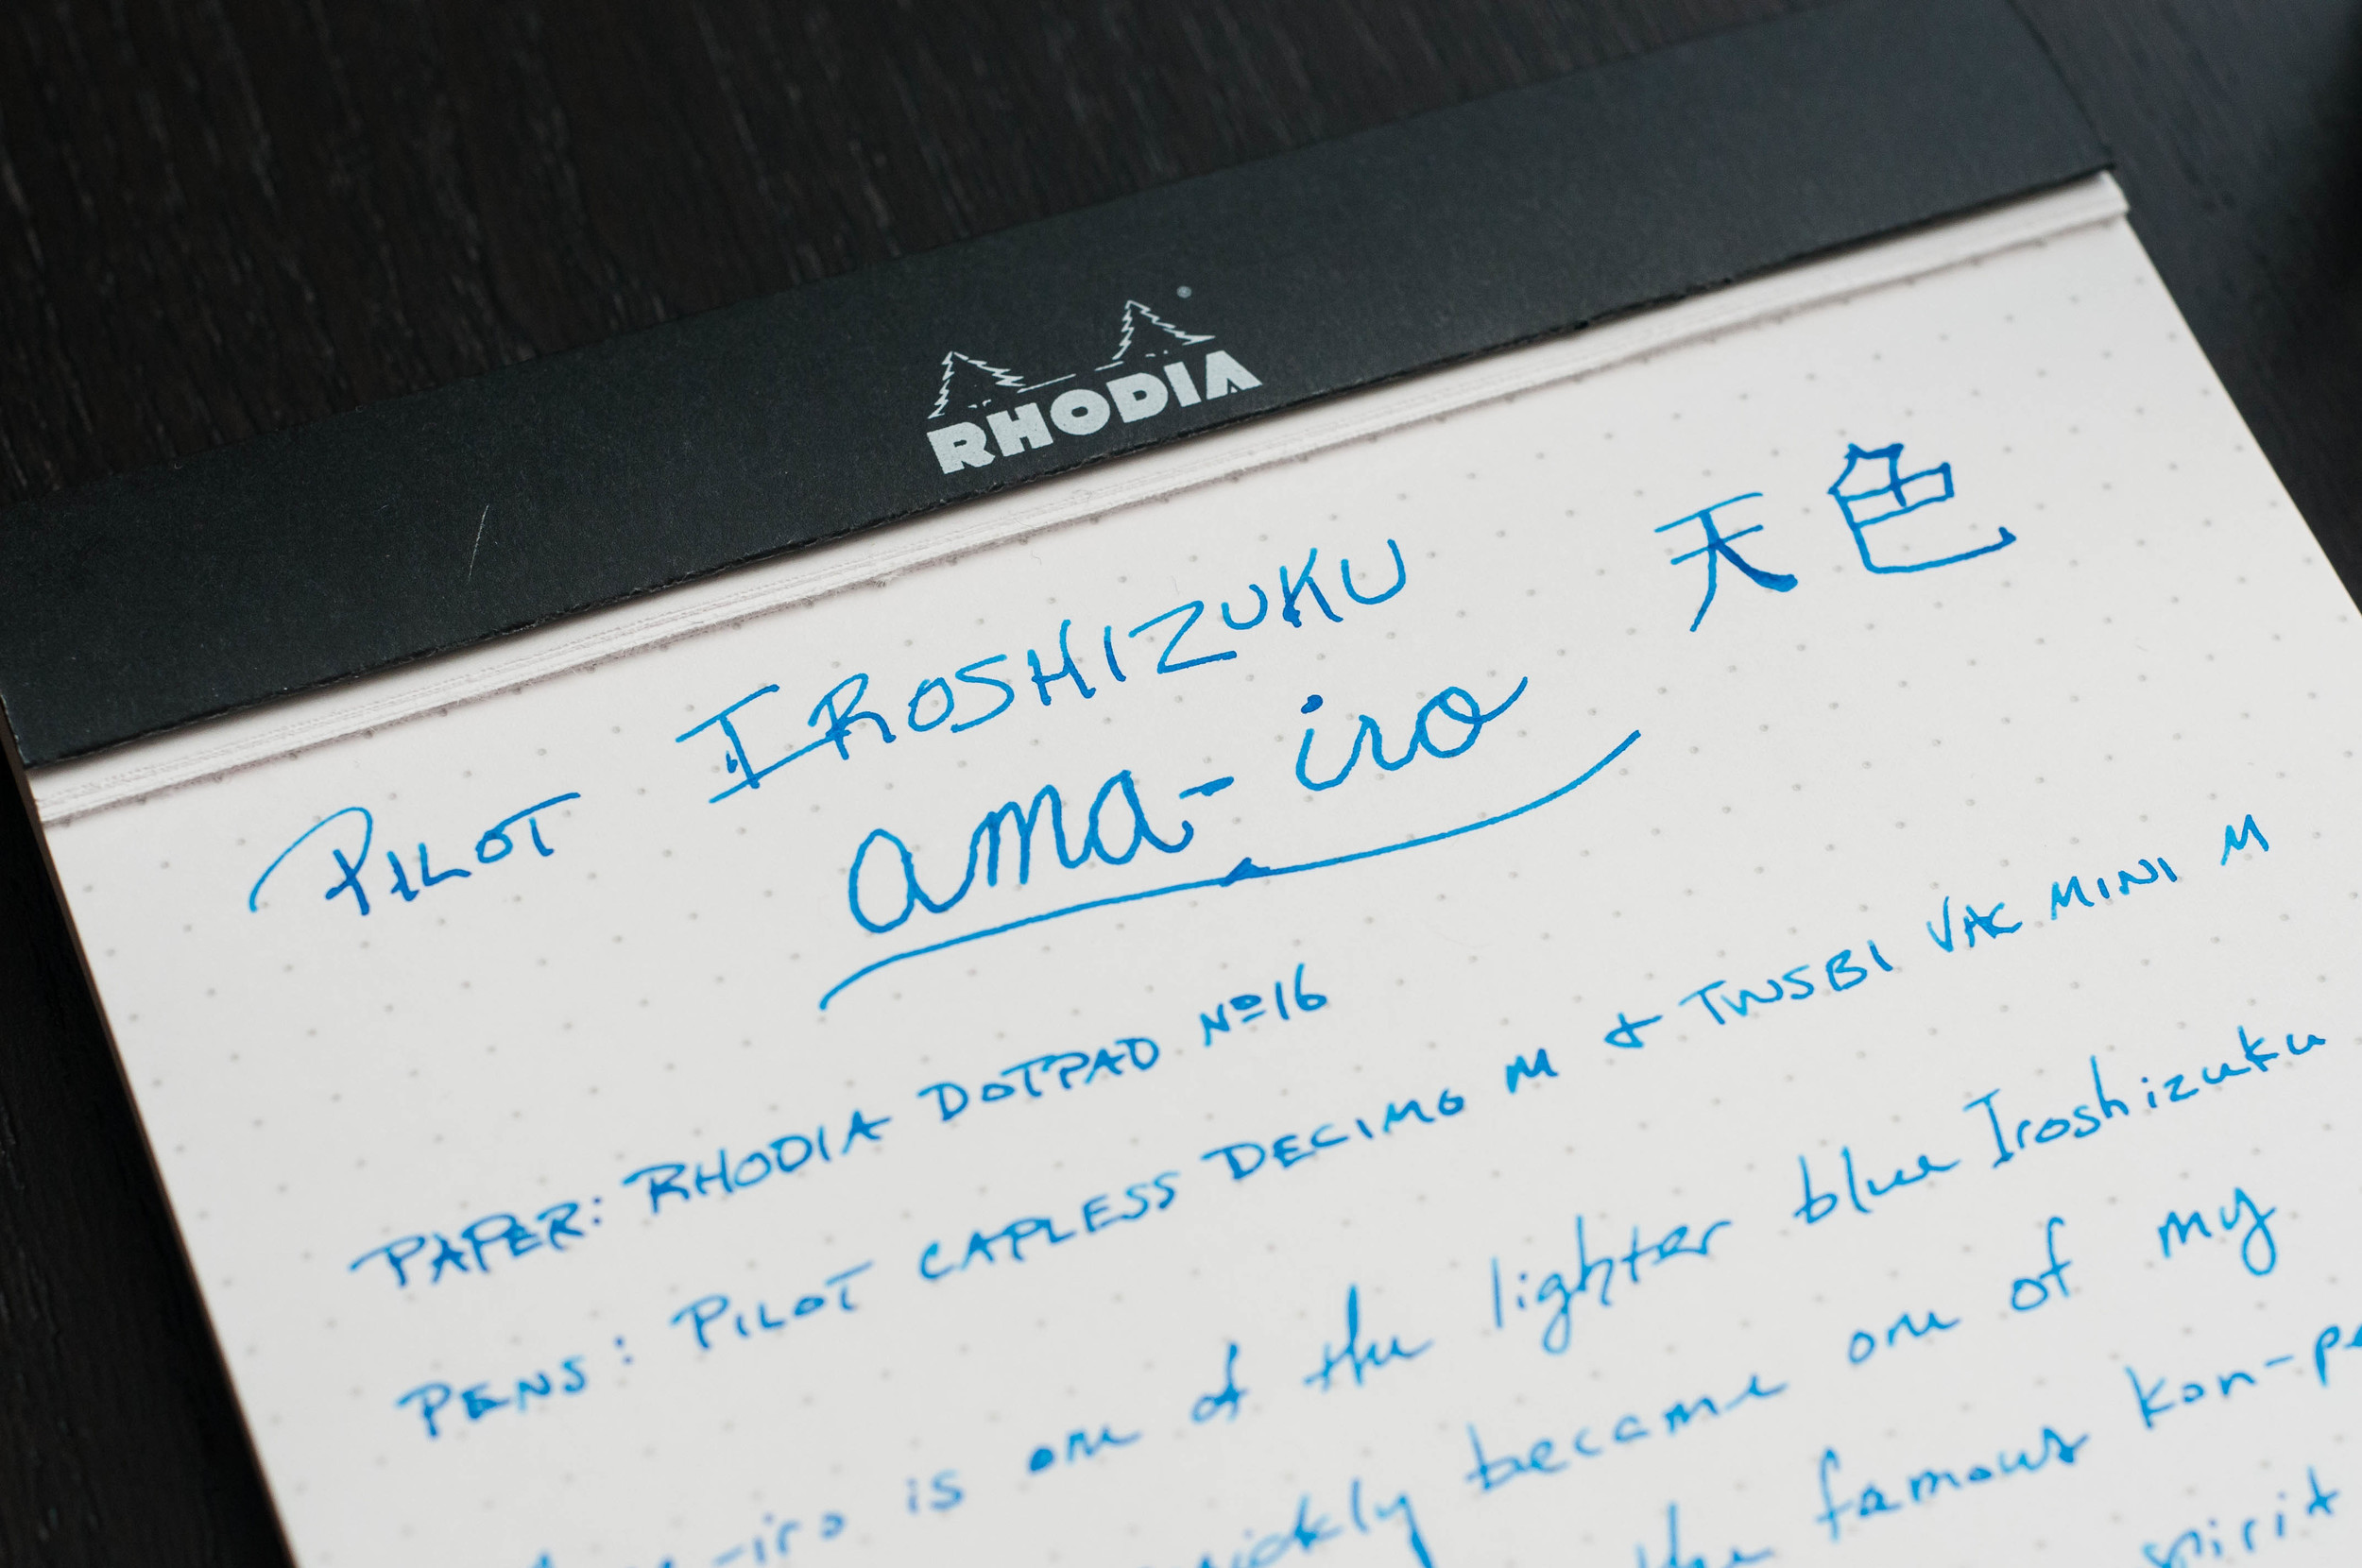 RHODIA
PILOT IROSHIZUKU 天色
ama-iro
PAPER: RHODIA DOTPAD Nº16
PENS: PILOT CAPLESS DECIMO M & TWSBI VAC MINI M
is one of the lighter blue Iroshizuku
became one of my
the famous kon-pe
spirit